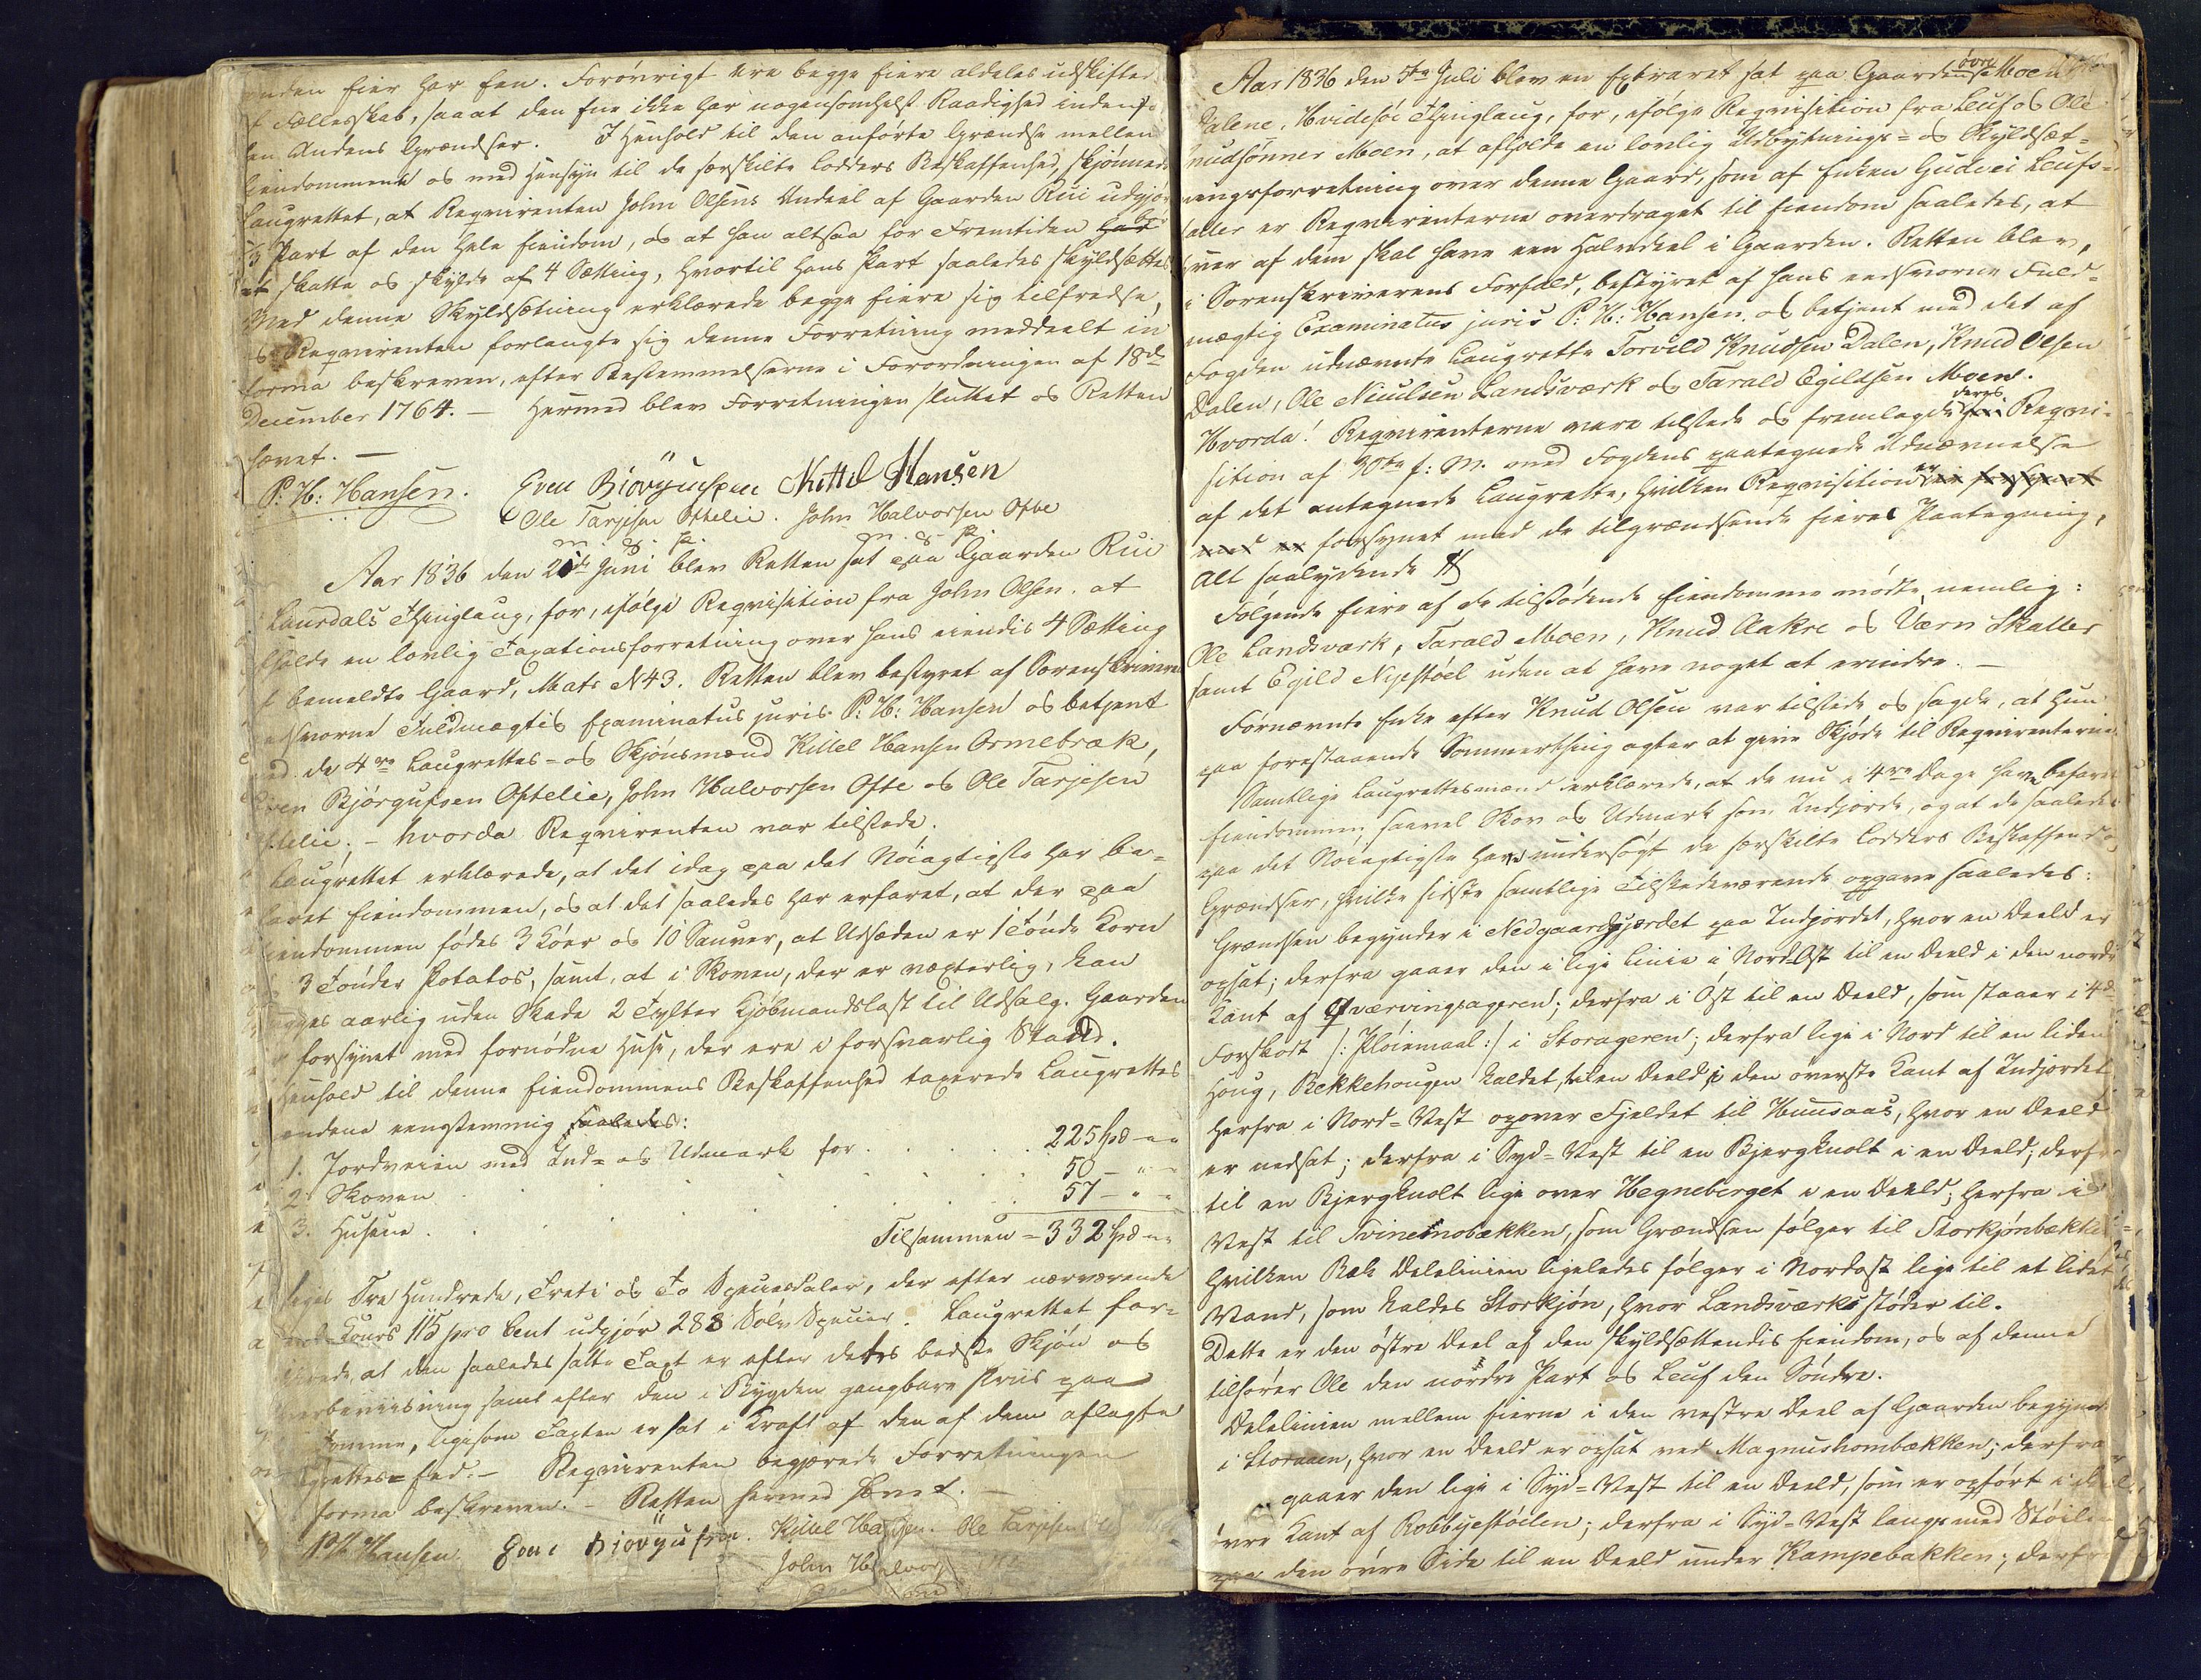 anden Eier har Een. Forøvrigt ere begge Eiere aldeles udskiftede
Fællesskab, saaat den Ene ikke har nogensomhelst Raadighed indenfor
den Andens Grændser. I Henhold til den anførte Grændse mellem
Eiendommene og med Hensyn til de særskilte Lodders Beskaffenhed, skjønnede
Laugrettet, at Reqvirenten John Olsens Andeel af Gaarden Rui udgjør
1/3 Part af den hele Eiendom, og at han altsaa for Fremtiden bør
skatte og skylde af 4 Sætting, hvortil hans Part saaledes skyldsættes
Med denne Skyldsætning erklærede begge Eiere sig tilfredse,
og Reqvirenten forlangte sig denne Forretning meddeelt in
forma beskreven, efter Bestemmelserne i Forordningen af 18de
December 1764. — Hermed blev Forretningen sluttet og Retten
hævet. —
P: H: Hansen. Even Biøvgufsen Kittil Hansen
Ole Tarjesen Oftelie. John Halvorsen Ofte
m. f. P. m. f. P.
Aar 1836 den 21de Juni blev Retten sat paa Gaarden Rui
Laurdals Thinglaug, for, ifølge Reqvisition fra John Olsen at
afholde en lovlig Taxationsforretning over hans eiendes 4 Sætting
i bemeldte Gaard, Matr. N 43. Retten blev bestyret af Sorenskriverens
edsvorne Fuldmægtig Examinatus juris P: H: Hansen og betjent
med de 4re Laugrettes- og Skjønsmænd Kittel Hansen Ormebræk,
Even Bjørgufsen Oftelie, John Halvorsen Ofte og Ole Tarjesen
Oftelie. – Hvorda Reqvirenten var tilstede.
Laugrettet erklærede, at det idag paa det Nøiagtigste har be-
faret Eiendommen, og at det saaledes har erfaret, at der paa
Eiendommen fødes 3 Køer og 10 Sauver, at Udsæden er 1 Tønde Korn
3 Tønder Potatos, samt, at i Skoven, der er væxterlig, kan
hugges aarlig uden Skade 2 Tylter Kjøbmandslast til Udsalg. Gaarden
er forsynet med fornødne Huse, der ere i forsvarlig Stand.
I Henhold til denne Eiendommens Beskaffenhed taxerede Laugrettes-
mændene eenstemmig saaledes:
1. Jordveien med Ind- og Udmark for . . . . . 225 Spd – "
2. Skoven . . . . . 50 – " –
3. Husene . . . . . 57 – " –
Tilsammen = 332 Spd – "
siger Tre Hundrede, Treti og To Speciesdaler, der efter nærværende
Cours 115 pro Cent udgjør 288 Sølv Specier. Laugrettet for-
klarede, at den saaledes satte Taxt er efter dets bedste Skjøn og
Overbeviisning samt efter den i Bygden gangbare Priis paa
Eiendomme, ligesom Taxten er sat i Kraft af den af dem aflagte
Laugrettes-Eed. – Reqvirenten begjærede Forretningen
in forma beskreven. – Retten hermed hævet. –
P H Hansen. Even Biøvgufsen. Kittel Hansen. Ole Tarjesen
John Halvor
Aar 1836 den 7de Juli blev en Extraret sat paa Gaarden øvre Moen
Dalene, Hvidesøe Thinglaug, for, ifølge Reqvisition fra Leuf og Ole
Knudsønner Moen, at afholde en lovlig Udbytnings- og Skyldsæt-
ningsforretning over denne Gaard, som af Enken Gudvei Leufs-
datter er Reqvirenterne overdraget til Eiendom saaledes, at
hver af dem skal have een Halvdeel i Gaarden. Retten blev,
i Sorenskriverens Forfald, bestyret af hans eedsvorne Fuld-
mægtig Examinatus juris P: H: Hansen og betjent med det af
Fogden udnævnte Laugrette Torvild Knudsen Dalen, Knud Olsen
Dalen, Ole Nieulsen Landsværk og Tarald Egildsen Moen.
Hvorda! Reqvirenterne vare tilstede og fremlagde deres Reqvi-
sition af 30te f: M. med Fogdens paategnede Udnævnelse
af det antegnede Laugrette, hvilken Reqvisition er
forsynet med de tilgrændsende Eieres Paategning,
Alt saalydende #
Følgende Eiere af de tilstødende Eiendomme mødte, nemlig:
Ole Landsværk, Tarald Moen, Knud Aakre og Værn Skatter
samt Egild Nipstøel uden at have noget at erindre. —
Førnævnte Enke efter Knud Olsen var tilstede og sagde, at hun
paa forestaaende Sommerthing agter at give Skjøde til Reqvirenterne.
Samtlige Laugrettesmænd erklærede, at de nu i 4re Dage have befaret
Eiendommen, saavel Skov og Udmark som Indjorde, og at de saaledes
paa det Nøiagtigste have undersøgt de særskilte Lodders Beskaffenhed og
Grændser, hvilke sidste samtlige Tilstedeværende opgave saaledes:
Grændsen begynder i Nedgaardgjærdet paa Indjordet, hvor en Deeld er
opsat; derfra gaaer den i lige Linie i Nord Ost til en Deeld i den nordre
Kant af Qværvingsageren; derfra i Øst til en Deeld, som staaer i 4de
Forskost /: Pløiemaal :/ i Storageren; derfra lige i Nord til en liden
Houg, Bekkehougen kaldet, til en Deeld i den øverste Kant af Indjordet
herfra i Nord-Vest opover Fjeldet til Huusaas, hvor en Deeld
er nedsat; derfra i Syd-Vest til en Bjergknolt i en Deeld; derfra
til en Bjergknolt lige over Hegneberget i en Deeld; herfra i
Vest til Svinemobækken, som Grændsen følger til Storkjønbækken
hvilken Bæk Delelinien ligeledes følger i Nordost lige til et lidet
Vand, som kaldes Storkjøn, hvor Landsværks støder til.
Dette er den østre Deel af den skyldsættendes Eiendom, og af denne
tilhører Ole den nordre Part og Leuf den Søndre.
Delelinien mellem Eierne i den vestre Deel af Gaarden begynder
i Storaaen, hvor en Deeld er opsat ved Magnushombækken; derfra
gaaer den lige i Syd-Vest til en Deeld, som er opført i
øvre Kant af Robbyestøilen; derfra i Syd-Vest langs med Støilen
paa den øvre Side til en Deeld under Kampebakken; derfra